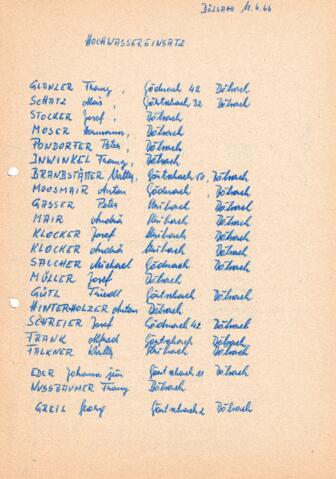 Dölsach 12.4.66
HOCHWASSEREINSATZ
GLANZER Franz, Gödnach 42 Dölsach
SCHATZ Alois, Görtschach 32 Dölsach
STOCKER Josef, Dölsach
MOSER Hermann, Dölsach
PONDORFER Peter, Dölsach
INWINKEL Franz, Dölsach
BRANDSTÄTTER Walter, Görtschach 50, Dölsach
MOOSMAIR Anton Gödnach, Dölsach
GASSER Peter Dölsach
MAIR Andrä Dölsach
KLOCKER Josef Dölsach
KLOCKER Andrä Dölsach
SALCHER Michael Gödnach Dölsach
MÜLLER Josef Dölsach
GÜTL Friedl Görtschach Dölsach
HINTERHOLZER Anton Dölsach
SCHREIER Josef Gödnach 42 Dölsach
FRANK Alfred Görtschach Dölsach
FALKNER Walter Dölsach
EDER Johann jun Görtschach 11 Dölsach
NUSSBAUMER Franz Dölsach
GREIL Georg Görtschach 2 Dölsach